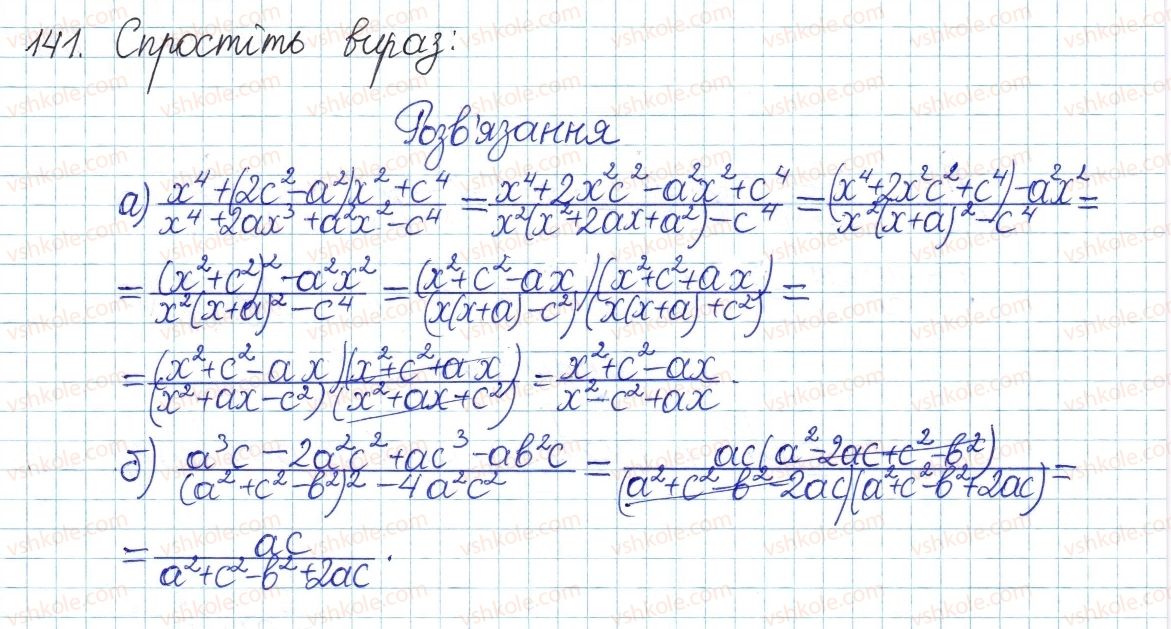 141. Спростіть вираз:
Розв'язання
а) (x⁴+(2c²-a²)x²+c⁴)/(x⁴+2ax³+a²x²-c⁴) = (x⁴+2x²c²-a²x²+c⁴)/(x²(x²+2ax+a²)-c⁴) = ((x⁴+2x²c²+c⁴)-a²x²)/(x²(x+a)²-c⁴) =
= ((x²+c²)²-a²x²)/(x²(x+a)²-c⁴) = ((x²+c²-ax)(x²+c²+ax))/((x(x+a)-c²)(x(x+a)+c²)) =
= ((x²+c²-ax)(x²+c²+ax))/((x²+ax-c²)(x²+ax+c²)) = (x²+c²-ax)/(x²-c²+ax).
б) (a³c-2a²c²+ac³-ab²c)/((a²+c²-b²)²-4a²c²) = (ac(a²-2ac+c²-b²))/((a²+c²-b²-2ac)(a²+c²-b²+2ac)) =
= ac/(a²+c²-b²+2ac).
vshkole.com